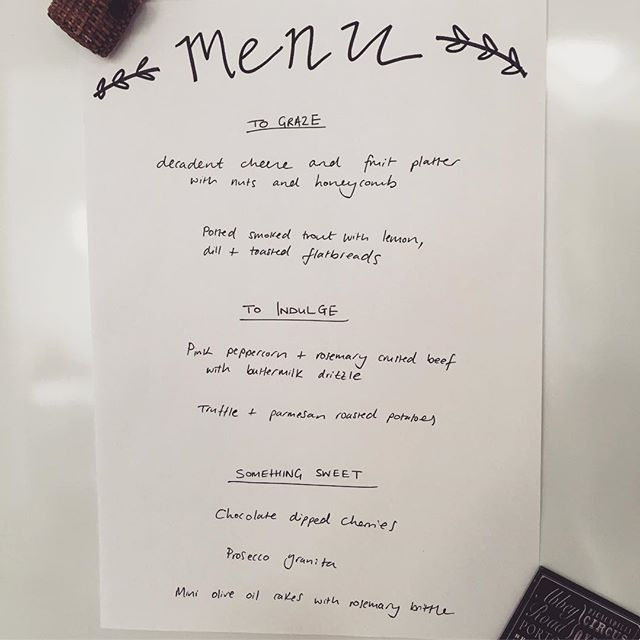 menu
TO GRAZE
decadent cheese and fruit platter
with nuts and honeycomb
Potted smoked trout with lemon,
dill + toasted flatbreads
TO INDULGE
Pink peppercorn + rosemary crusted beef
with buttermilk drizzle
Truffle + parmesan roasted potatoes
SOMETHING SWEET
Chocolate dipped cherries
Prosecco granita
Mini olive oil cakes with rosemary brittle
Abbey
Road